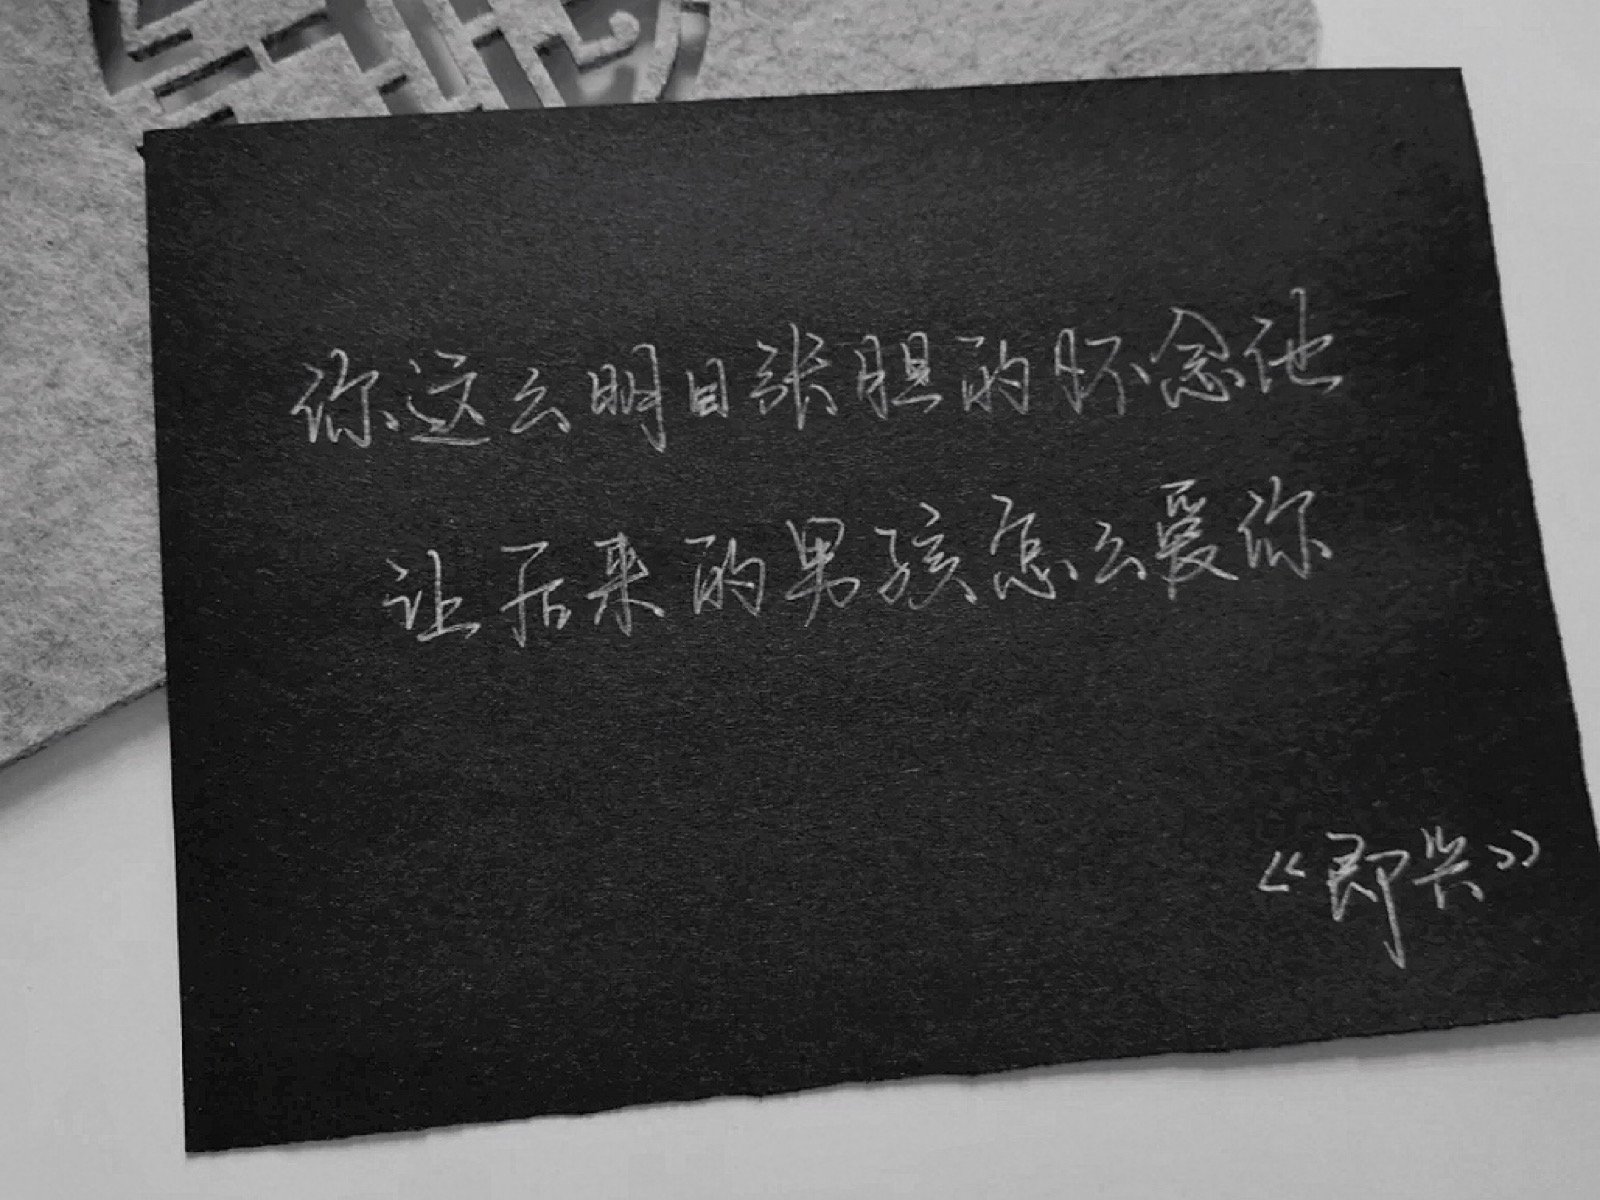 你这么明目张胆的怀念他
让后来的男孩怎么爱你
《即兴》